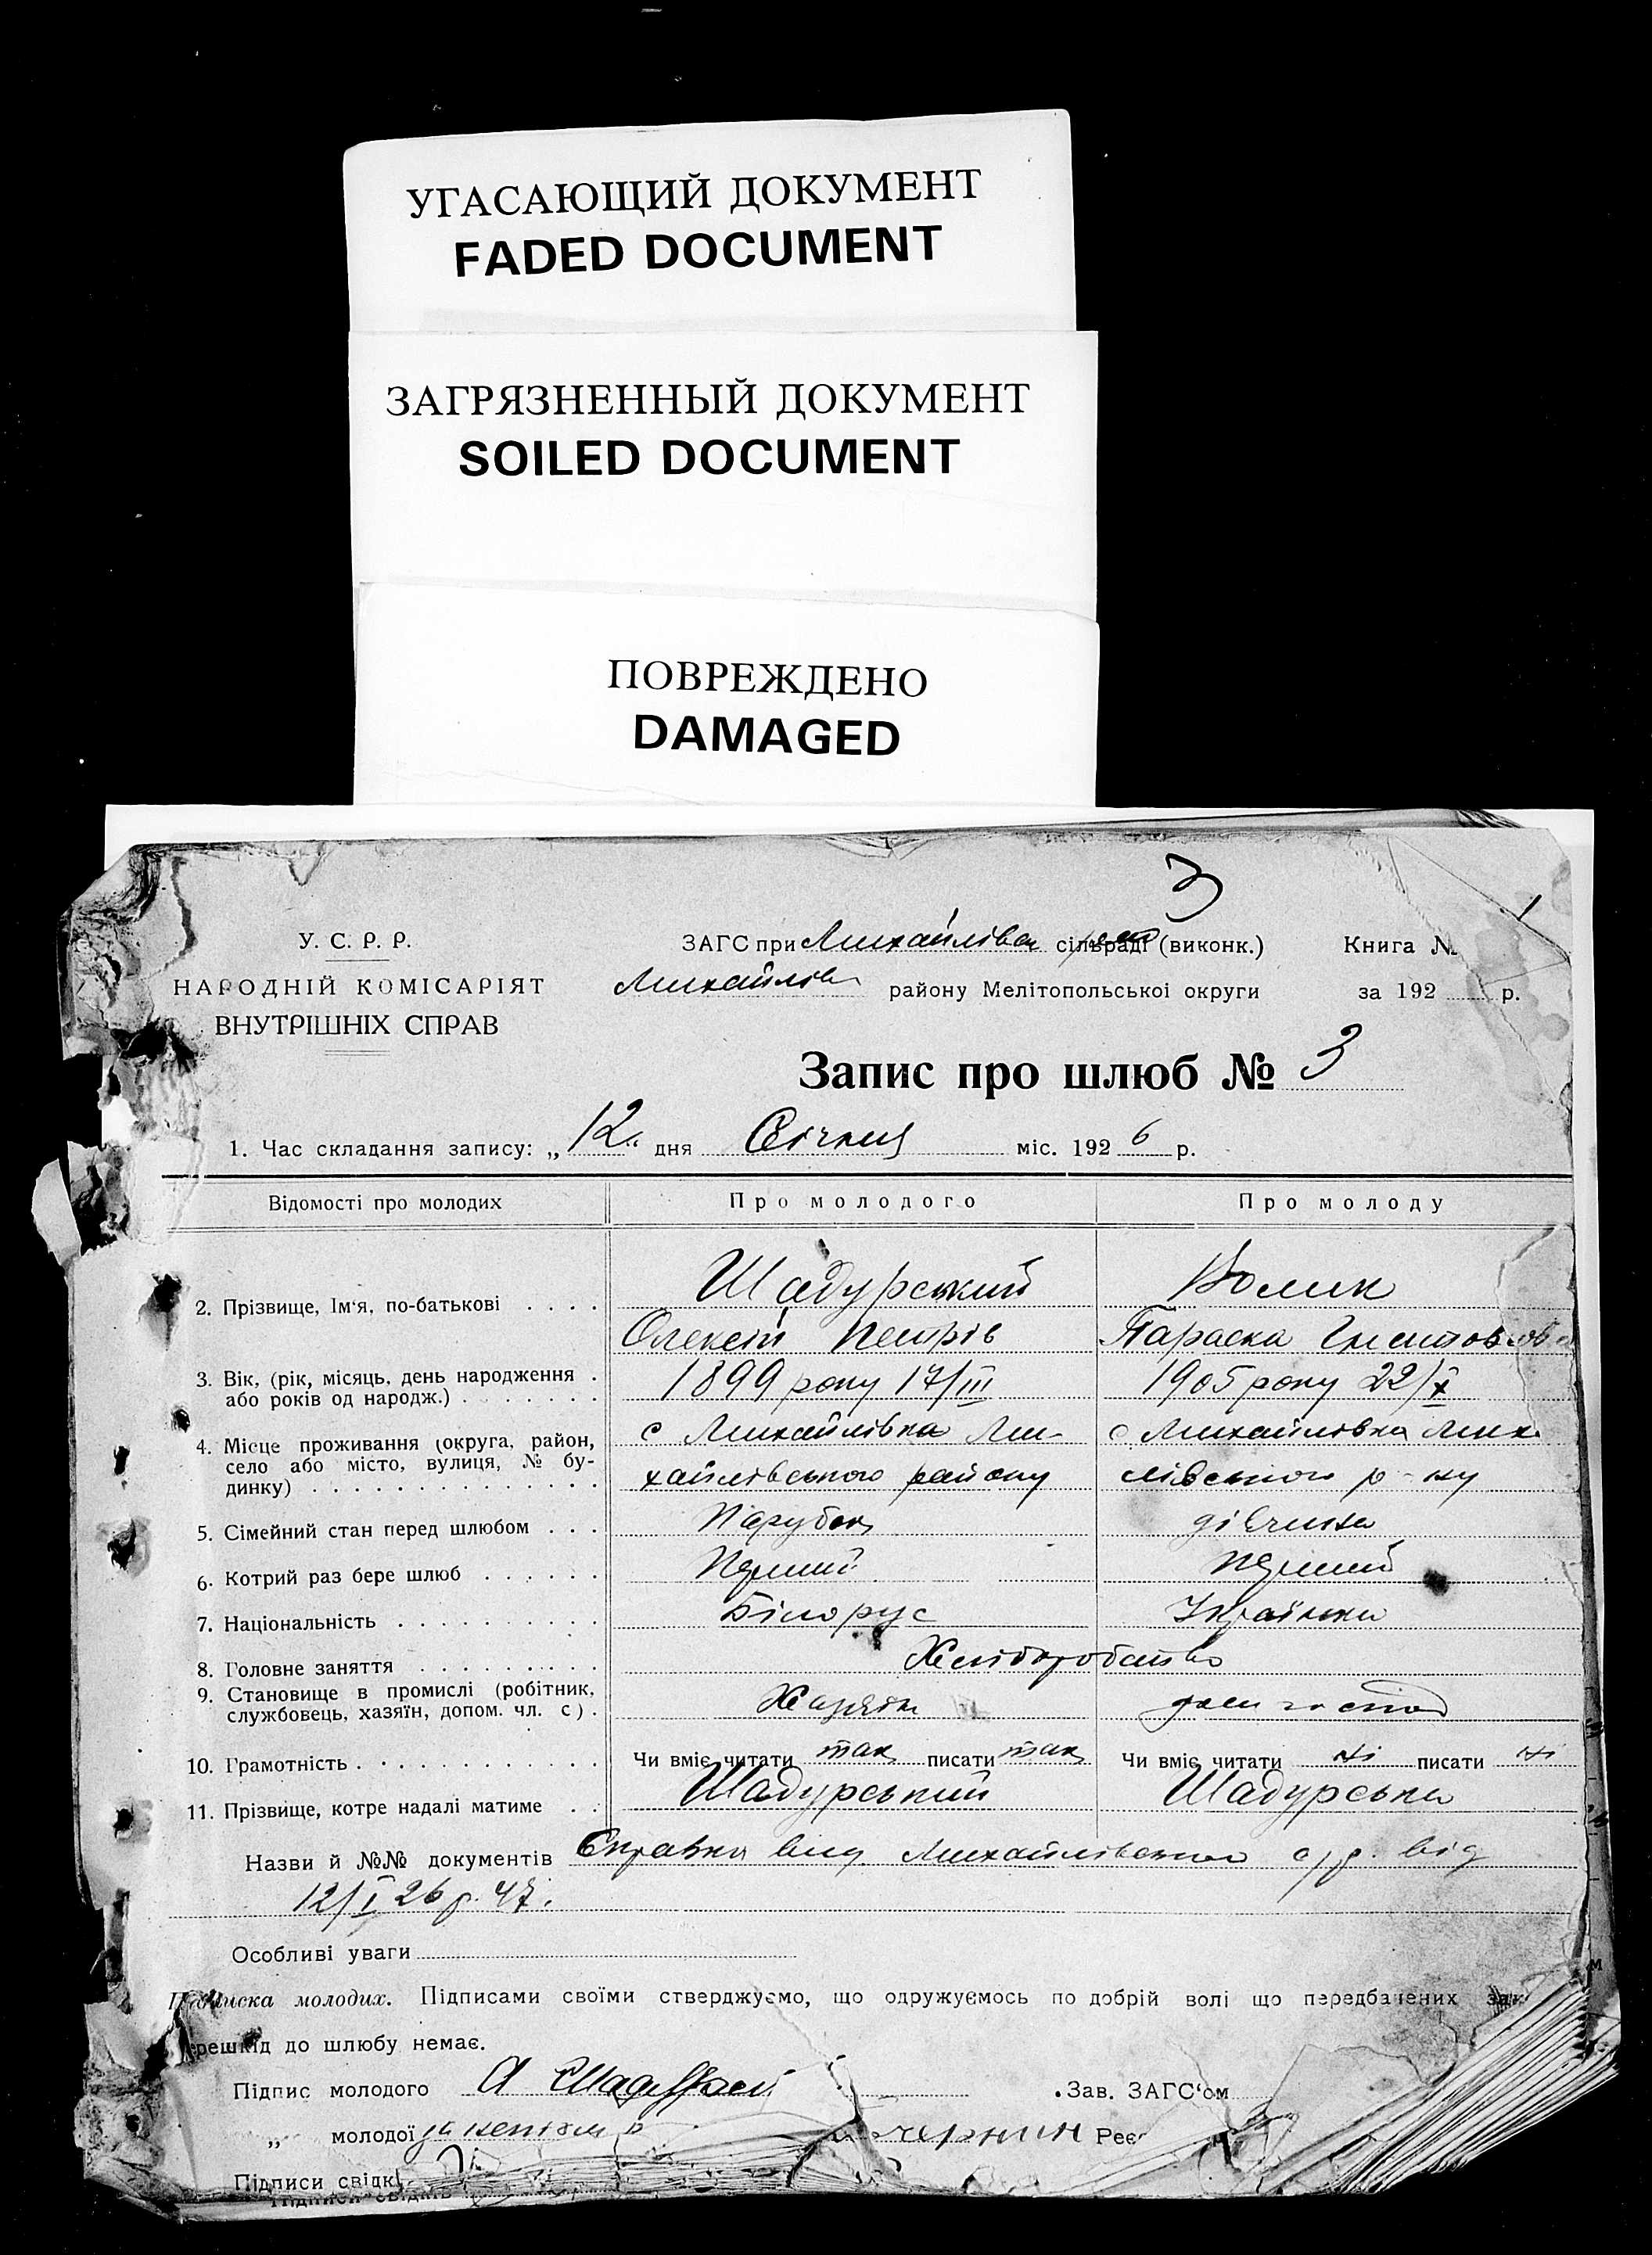 УГАСАЮЩИЙ ДОКУМЕНТ
FADED DOCUMENT
ЗАГРЯЗНЕННЫЙ ДОКУМЕНТ
SOILED DOCUMENT
ПОВРЕЖДЕНО
DAMAGED
3
1
У. С. Р. Р.
НАРОДНІЙ КОМІСАРІЯТ
ВНУТРІШНІХ СПРАВ
ЗАГС при Михайлівсь сільраді (виконк.)
Книга №
Михайлів району Мелітопольської округи
за 192 р.
Запис про шлюб № 3
1. Час складання запису: „12“ дня Січня міс. 1926 р.
Відомості про молодих Про молодого Про молоду
2. Прізвище, Ім‘я, по-батькові Шадурський Волик
Олексій Петрів Параска
3. Вік, (рік, місяць, день народження або років од народж.) 1899 року 17/III 1905 року 22/X
4. Місце проживання (округа, район, село або місто, вулиця, № будинку) с Михайлівка Михайлівського району с Михайлівка Мих лівського р-ну
5. Сімейний стан перед шлюбом Парубок дівчина
6. Котрий раз бере шлюб Перший Перший
7. Національність Білорус Українка
8. Головне заняття Хліборобство
9. Становище в промислі (робітник, службовець, хазяїн, допом. чл. с). Хазяїн
10. Грамотність Чи вміє читати так писати так Чи вміє читати ні писати ні
11. Прізвище, котре надалі матиме Шадурський Шадурська
Назви й №№ документів Справка вид. Михайлівською с/р. від
12/I 26 р. 47.
Особливі уваги
Підписка молодих. Підписами своїми стверджуємо, що одружуємось по добрій волі що передбачених зак
перешкід до шлюбу немає.
Підпис молодого А
Зав. ЗАГС‘ом
„ молодої
Реєс
Підписи свідк
Підписи свідків